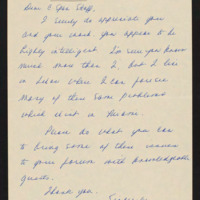 Dear C Span Staff,
I surely do appreciate you
and your work. You appear to be
highly intelligent. I'm sure you know
much more than I, but I live
in when I can foresee
Many of these same problems
which exist in
Please do what you can
to bring some of these
to your forum with knowledgeable
guests.
Thank you.